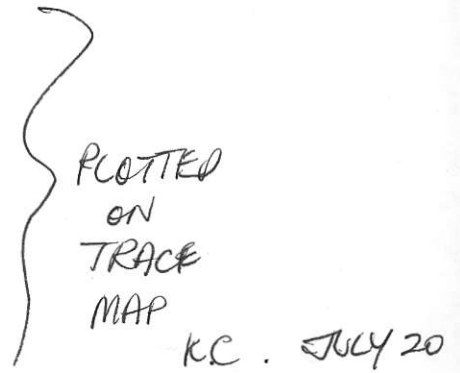 PLOTTED
ON
TRACE
MAP
K.C. JULY 20